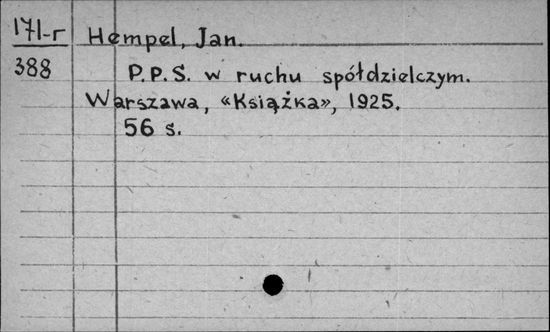 171-r
388
Hempel, Jan.
P.P.S. w ruchu spółdzielczym.
Warszawa, «Książka», 1925.
56 s.